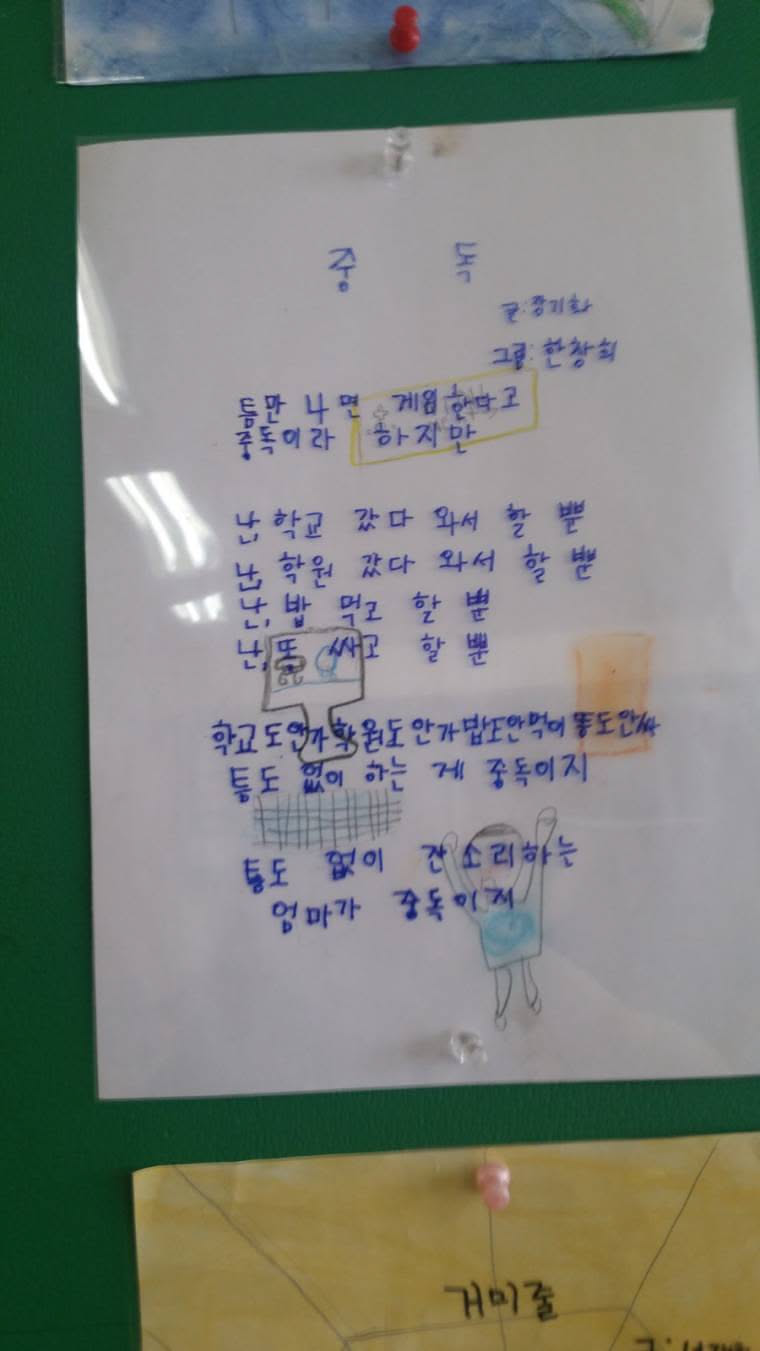 중 독
글:장기화
그림:한창희
틈만 나면 게임한다고
중독이라 하지만
난, 학교 갔다 와서 할 뿐
난, 학원 갔다 와서 할 뿐
난, 밥 먹고 할 뿐
난, 똥 싸고 할 뿐
학교도안가학원도안가밥도안먹어똥도안싸
틈도 없이 하는 게 중독이지
틈도 없이 잔소리하는
엄마가 중독이지
거미줄